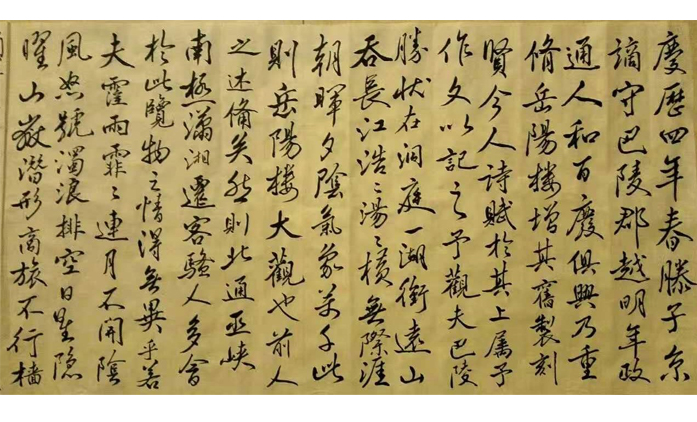 慶歷四年春滕子京
謫守巴陵郡越明年政
通人和百廢俱興乃重
脩岳陽樓增其舊製刻
賢今人詩賦於其上属予
作文以記之予觀夫巴陵
勝狀在洞庭一湖銜遠山
吞長江浩〻湯〻橫無際涯
朝暉夕陰氣象万千此
則岳陽樓大觀也前人
之述備矣然則北通巫峡
南極瀟湘遷客騷人多會
於此覽物之情得無異乎若
夫霪雨霏〻連月不開陰
風怒號濁浪排空日星隐
曜山嶽潛形商旅不行檣